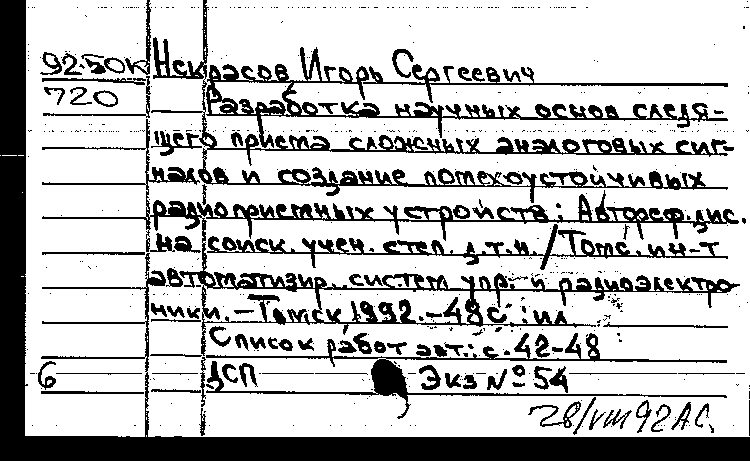 92-50К Некрасов Игорь Сергеевич
720 Разработка научных основ следя-
щего приема сложных аналоговых сиг-
налов и создание помехоустойчивых
радиоприемных устройств: Автореф. дис.
на соиск. учен. степ. д.т.н. / Томс. ин-т
автоматизир. систем упр. и радиоэлектро-
ники. - Томск, 1992. - 48 с.: ил.
Список работ авт.: с. 42-48
6 ДСП Экз № 54
28/VIII 92 АС.